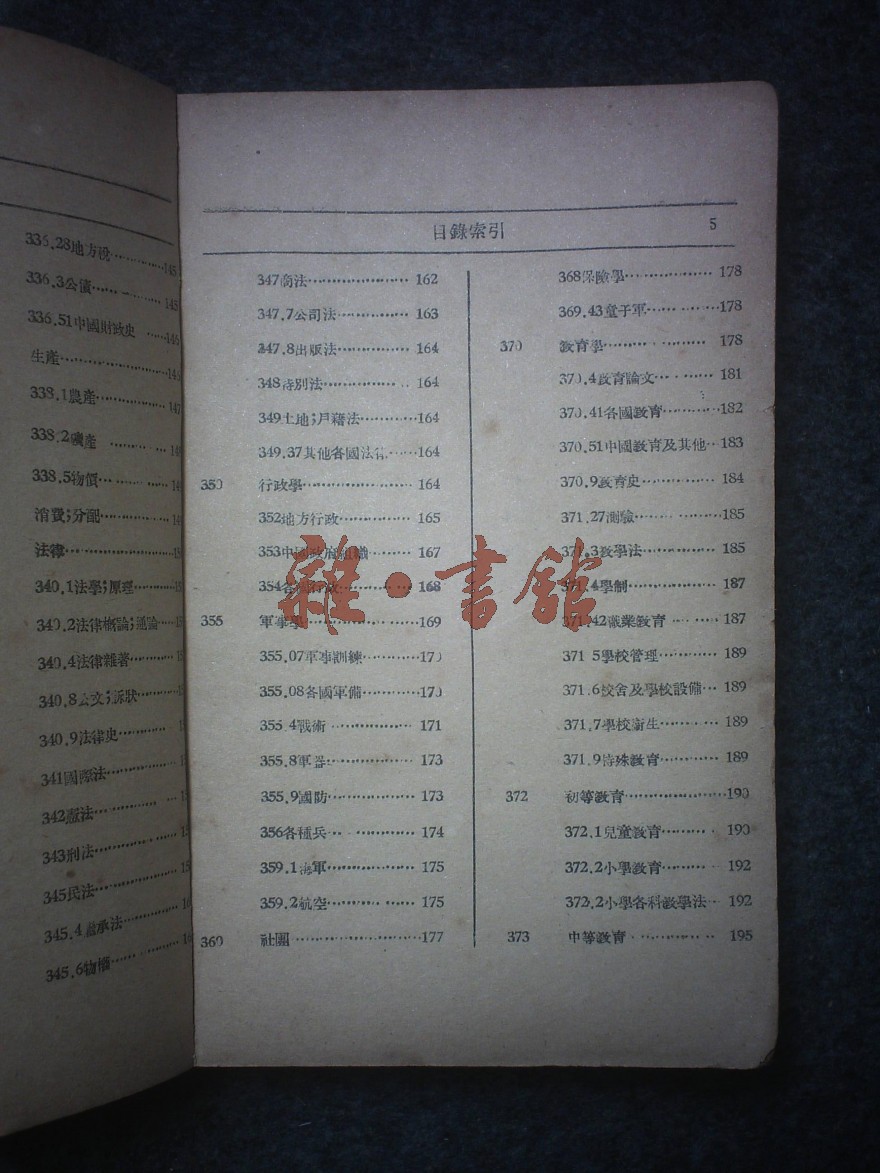 336.28地方稅 145
336.3公債 145
336.51中國財政史 146
生產 146
338.1農產 147
338.2礦產
338.5物價
消費;分配
法律
340.1法學;原理
340.2法律概論;通論
340.4法律雜著
340.8公文;訴狀
340.9法律史
341國際法
342憲法
343刑法
345民法
345.4繼承法
345.6物權
目錄索引 5
347商法 162
347.7公司法 163
347.8出版法 164
348特別法 164
349土地;戶籍法 164
349.37其他各國法律 164
350 行政學 164
352地方行政 165
353中國政府組織 167
354各國行政 168
355 軍事學 169
355.07軍事訓練 170
355.08各國軍備 170
355.4戰術 171
355.8軍器 173
355.9國防 173
356各種兵 174
359.1海軍 175
359.2航空 175
360 社團 177
368保險學 178
369.43童子軍 178
370 教育學 178
370.4教育論文 181
370.41各國教育 182
370.51中國教育及其他 183
370.9教育史 184
371.27測驗 185
371.3教學法 185
371.4學制 187
371.42職業教育 187
371 5學校管理 189
371.6校舍及學校設備 189
371.7學校衛生 189
371.9特殊教育 189
372 初等教育 190
372.1兒童教育 190
372.2小學教育 192
372.2小學各科教學法 192
373 中等教育 195
雜·書館